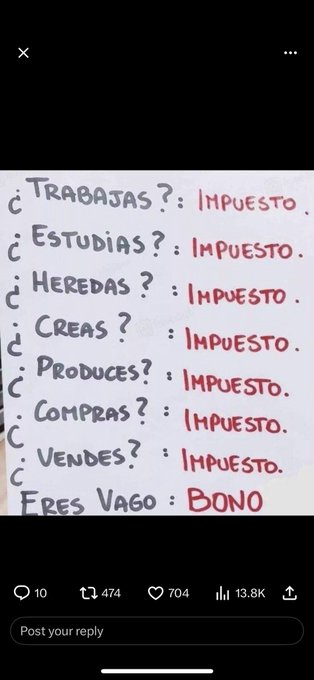 ¿TRABAJAS?: IMPUESTO.
¿ESTUDIAS?: IMPUESTO.
¿HEREDAS?: IMPUESTO.
¿CREAS?: IMPUESTO.
¿PRODUCES?: IMPUESTO.
¿COMPRAS?: IMPUESTO.
¿VENDES?: IMPUESTO.
ERES VAGO: BONO
10 474 704 13.8K
Post your reply